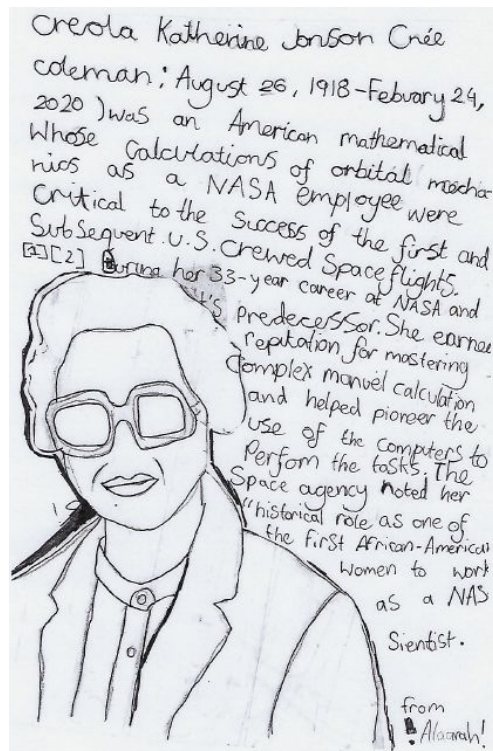 Creola Katherine Jonson Cnée
coleman: August 26, 1918-Febuary 24,
2020) was an American mathematical
Whose Calculations of orbital mecha-
nics as a NASA employee were
Critical to the Success of the first and
Subsequent U.S. crewed Space flights.
[1][2] During her 33-year career at NASA and
it's predecessor. She earned
repitation for mastering
Complex manuel calculation
and helped pioneer the
use of the computers to
Perfom the tasks. The
Space agency noted her
"historical role as one of
the first African-American
women to work
as a NAS
Sientist.
from
Alaarah!